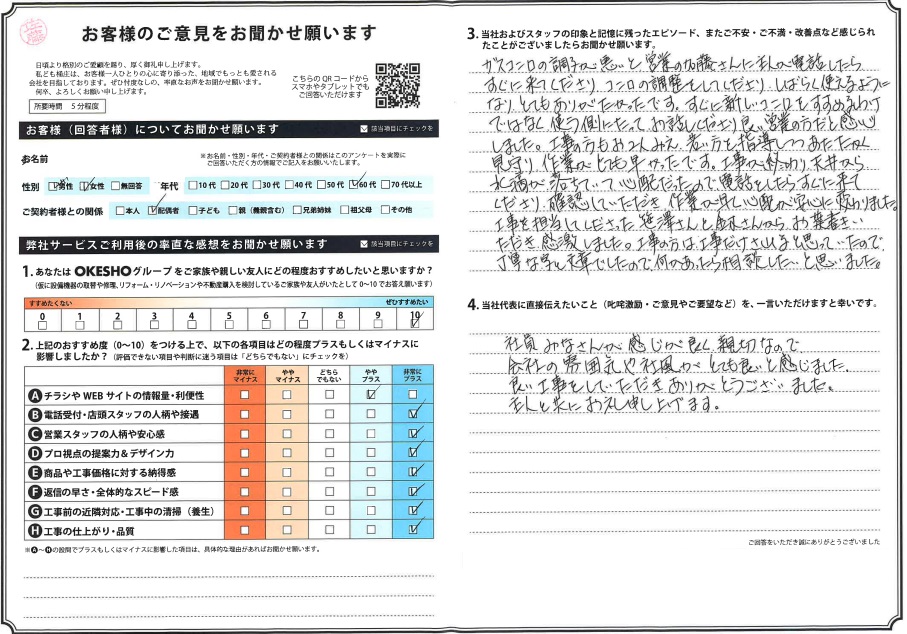 お客様のご意見をお聞かせ願います
日頃より格別のご愛顧を賜り、厚く御礼申し上げます。
私ども桶庄は、お客様一人ひとりの心に寄り添った、地域でもっとも愛される
会社を目指しております。ぜひ忖度なしの、率直なお声をお聞かせ願います。
何卒、よろしくお願い申し上げます。
所要時間 5分程度
こちらのQRコードから
スマホやタブレットでも
ご回答いただけます
お客様（回答者様）についてお聞かせ願います
☑ 該当項目にチェックを
お名前
※お名前・性別・年代・ご契約者様との関係はこのアンケートを実際に
ご回答いただく方の情報でご記入をお願いいたします。
性別 ☑男性 ☑女性 □無回答 年代 □10代 □20代 □30代 □40代 □50代 ☑60代 □70代以上
ご契約者様との関係 □本人 ☑配偶者 □子ども □親（義親含む） □兄弟姉妹 □祖父母 □その他
弊社サービスご利用後の率直な感想をお聞かせ願います
☑ 該当項目にチェックを
1. あなたは OKESHOグループ をご家族や親しい友人にどの程度おすすめしたいと思いますか？
（仮に設備機器の取替や修理、リフォーム・リノベーションや不動産購入を検討しているご家族や友人がいたとして0～10でお答え願います）
すすめたくない ぜひすすめたい
0 1 2 3 4 5 6 7 8 9 10
□ □ □ □ □ □ □ □ □ □ ☑
2. 上記のおすすめ度（0～10）をつける上で、以下の各項目はどの程度プラスもしくはマイナスに
影響しましたか？（評価できない項目や判断に迷う項目は「どちらでもない」にチェックを）
非常にマイナス ややマイナス どちらでもない ややプラス 非常にプラス
A チラシやWEBサイトの情報量・利便性 □ □ □ ☑ □
B 電話受付・店頭スタッフの人柄や接遇 □ □ □ □ ☑
C 営業スタッフの人柄や安心感 □ □ □ □ ☑
D プロ視点の提案力＆デザイン力 □ □ □ □ ☑
E 商品や工事価格に対する納得感 □ □ □ □ ☑
F 返信の早さ・全体的なスピード感 □ □ □ □ ☑
G 工事前の近隣対応・工事中の清掃（養生） □ □ □ □ ☑
H 工事の仕上がり・品質 □ □ □ □ ☑
※A～Hの設問でプラスもしくはマイナスに影響した項目は、具体的な理由があればお聞かせ願います。
3. 当社およびスタッフの印象と記憶に残ったエピソード、またご不安・ご不満・改善点など感じられ
たことがございましたらお聞かせ願います。
ガスコンロの調子が悪いと営業の佐藤さんに主人が電話したら
すぐに来てくださり、コンロの調整をしてくださり、しばらく使えるように
なり、とてもありがたかったです。すぐに新しいコンロをすすめるわけ
ではなく使う側にたって、お話しくださり良い営業の方だと感心
しました。工事の方もお二人みえ、若い方を指導しつつあたたかく
見守り、作業がとても早かったです。工事が終わり、天井から
水滴が落ちていて心配だったので電話をしたらすぐに来て
くださり、確認していただき、作業が早く心配が安心に変わりました。
工事を担当してくださった笹澤さんと さんから、お葉書をい
ただき、感激しました。工事の方は工事だけされると思っていたので、
丁寧な字と文章でしたので、何かあったら相談したいと思いました。
4. 当社代表に直接伝えたいこと（叱咤激励・ご意見やご要望など）を、一言いただけますと幸いです。
社員みなさんが感じが良く、親切なので
会社の雰囲気や社風がとても良いと感じました。
良い工事をしていただきありがとうございました。
主人と共にお礼申し上げます。
ご回答をいただき誠にありがとうございました